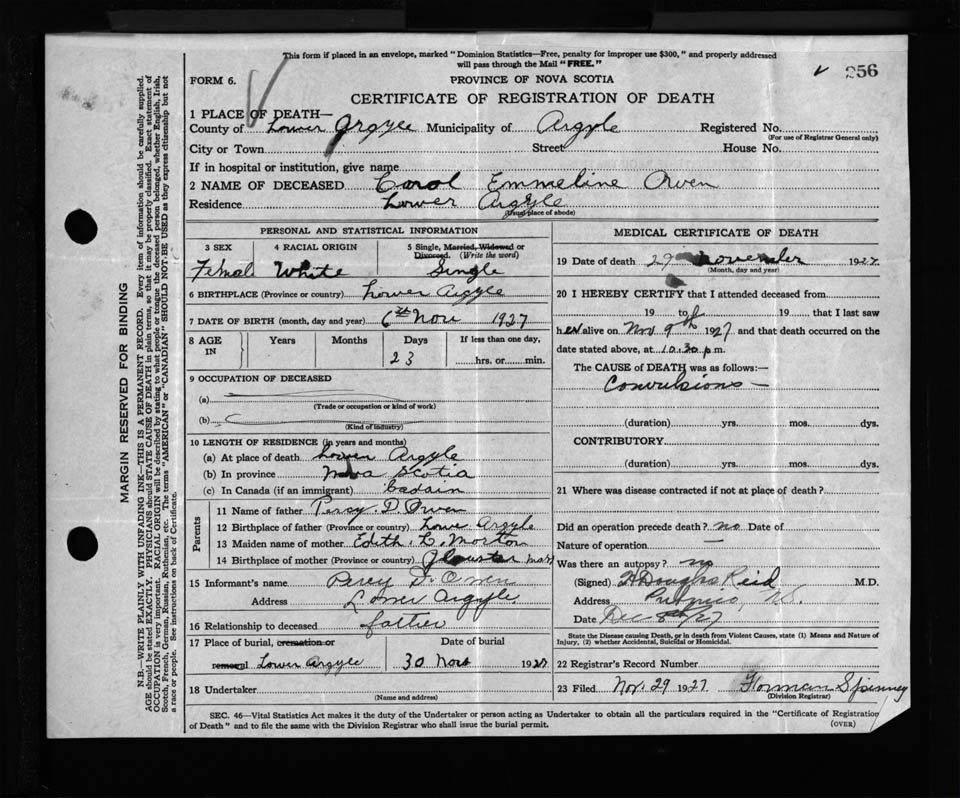 This form if placed in an envelope, marked "Dominion Statistics—Free, penalty for improper use $300," and properly addressed
will pass through the Mail "FREE."
256
FORM 6.
PROVINCE OF NOVA SCOTIA
CERTIFICATE OF REGISTRATION OF DEATH
1 PLACE OF DEATH—
County of Lower Argyle Municipality of Argyle Registered No.
(For use of Registrar General only)
City or Town Street House No.
If in hospital or institution, give name
2 NAME OF DECEASED Carol Emmeline Owen
Residence Lower Argyle
(Usual place of abode)
PERSONAL AND STATISTICAL INFORMATION
3 SEX 4 RACIAL ORIGIN 5 Single, Married, Widowed or
Divorced. (Write the word)
Femal White Single
6 BIRTHPLACE (Province or country) Lower Argyle
7 DATE OF BIRTH (month, day and year) 6th Nov 1927
8 AGE IN Years Months Days If less than one day,
23 hrs. or min.
9 OCCUPATION OF DECEASED
(a)
(Trade or occupation or kind of work)
(b)
(Kind of industry)
10 LENGTH OF RESIDENCE (in years and months)
(a) At place of death Lower Argyle
(b) In province Nova Scotia
(c) In Canada (if an immigrant)
Parents
11 Name of father Percy D. Owen
12 Birthplace of father (Province or country) Lowe Argyle
13 Maiden name of mother Edith L. Morton
14 Birthplace of mother (Province or country) Mass
15 Informant's name Percy D. Owen
Address Lower Argyle
16 Relationship to deceased father
17 Place of burial, cremation or Date of burial
removal Lower Argyle 30 Nov 1927
18 Undertaker
(Name and address)
MEDICAL CERTIFICATE OF DEATH
19 Date of death 29 November 1927
(Month, day and year)
20 I HEREBY CERTIFY that I attended deceased from
19 to 19 that I last saw
her alive on Nov 9th 1927 and that death occurred on the
date stated above, at 10.30 p.m.
The CAUSE of DEATH was as follows:—
Convulsions—
(duration) yrs. mos. dys.
CONTRIBUTORY
(duration) yrs. mos. dys.
21 Where was disease contracted if not at place of death?
Did an operation precede death? no Date of
Nature of operation —
Was there an autopsy? no
(Signed) H Douglas Reid M.D.
Address Pubnico, N.S.
Date Dec 8/27
State the Disease causing Death, or in death from Violent Causes, state (1) Means and Nature of
Injury, (2) whether Accidental, Suicidal or Homicidal.
22 Registrar's Record Number
23 Filed Nov. 29 1927 Spinney
(Division Registrar)
SEC. 46—Vital Statistics Act makes it the duty of the Undertaker or person acting as Undertaker to obtain all the particulars required in the "Certificate of Registration
of Death" and to file the same with the Division Registrar who shall issue the burial permit.
(OVER)
MARGIN RESERVED FOR BINDING
N.B.—WRITE PLAINLY WITH UNFADING INK—THIS IS A PERMANENT RECORD. Every item of information should be carefully supplied.
AGE should be stated EXACTLY. PHYSICIANS should STATE CAUSE OF DEATH in plain terms, so that it may be properly classified. Exact statement of
OCCUPATION is very important. RACIAL ORIGIN will be described by stating to what people or tongue the deceased person belonged, whether English, Irish,
Scotch, French, German, Russian, Ruthenian, etc. The terms "AMERICAN" or "CANADIAN" SHOULD NOT BE USED as they express citizenship but not
a race or people. See instructions on back of Certificate.